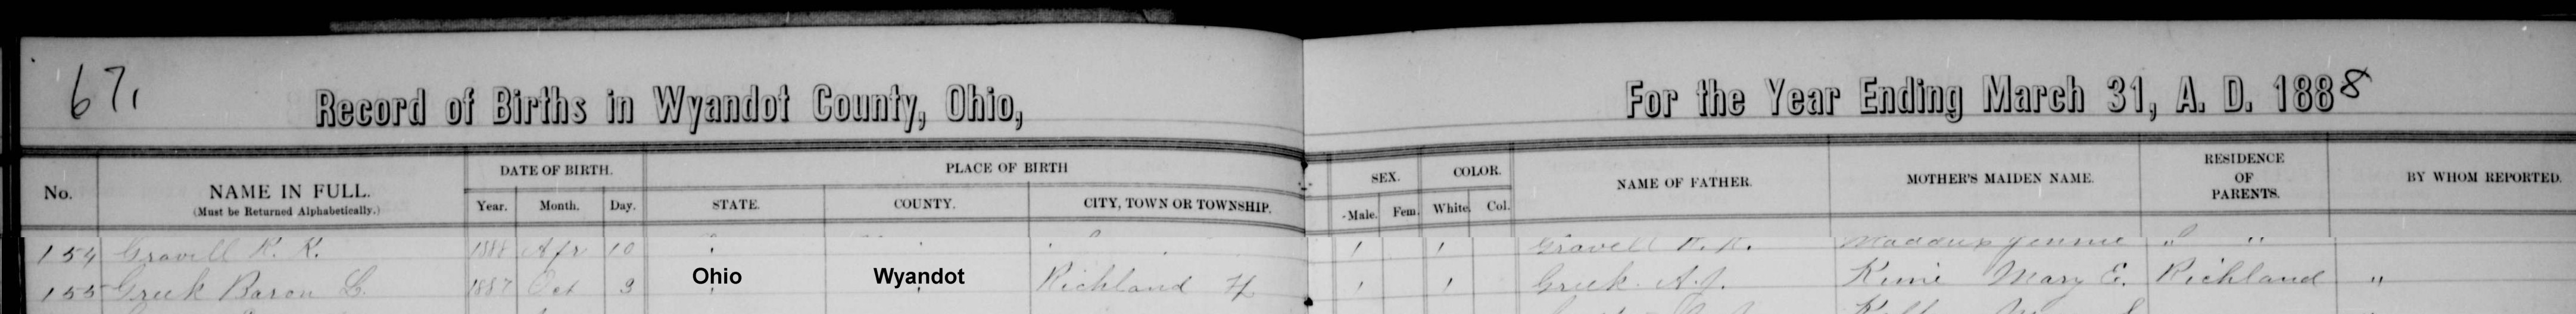 67,
Record of Births in Wyandot County, Ohio, For the Year Ending March 31, A. D. 1888
No. NAME IN FULL. (Must be Returned Alphabetically.) DATE OF BIRTH. Year. Month. Day. PLACE OF BIRTH STATE. COUNTY. CITY, TOWN OR TOWNSHIP. SEX. Male. Fem. COLOR. White. Col. NAME OF FATHER. MOTHER'S MAIDEN NAME. RESIDENCE OF PARENTS. BY WHOM REPORTED.
154 Gravell K. K. 1888 Apr 10 " 1 1 Gravell K. K. Maddux Jennie " "
155 Greek Baron L. 1887 Oct 3 Ohio Wyandot Richland 1 1 Greek A. J. Mary E. Richland "